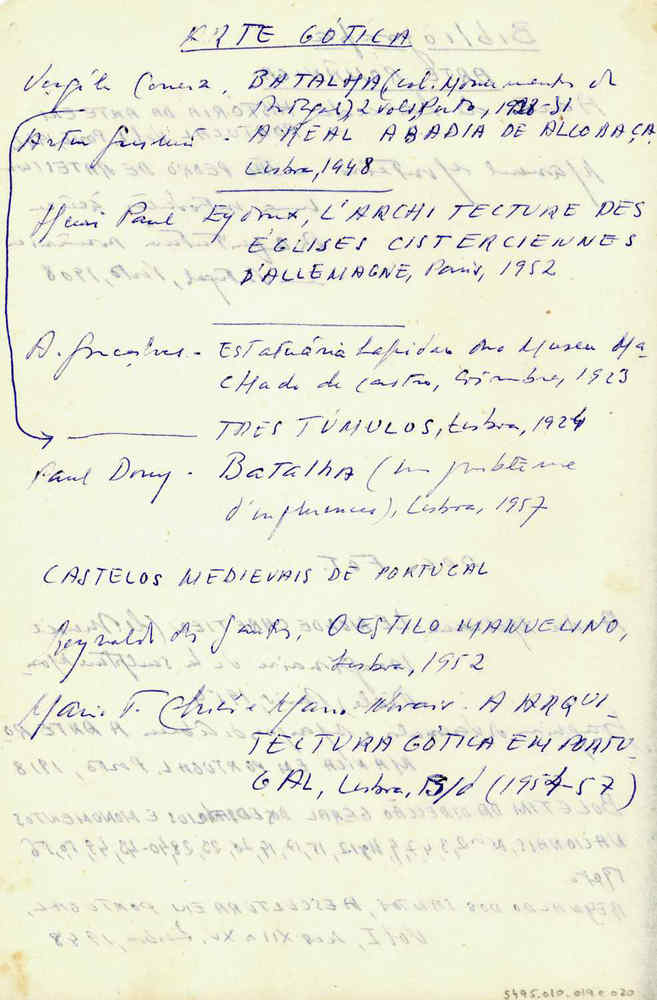 ARTE GÓTICA
Vergílio Correia, BATALHA (col. Monumentos de
Portugal) 2 vols, Porto, 1928-31
Artur Gusmão - A REAL ABADIA DE ALCOBAÇA
Lisboa, 1948
Henri Paul Eydoux, L'ARCHITECTURE DES
ÉGLISES CISTERCIENNES
D'ALLEMAGNE, Paris, 1952
A. Gonçalves - EStatuária Lapidar no Museu Ma-
chado de Castro, Coimbra, 1923
TRES TÚMULOS, Lisboa, 1924
Paul Dony - BatalhA (un problème
d'influences), Lisboa, 1957
CASTELOS MEDIEVAIS DE PORTUGAL
Reynaldo dos Santos, O ESTILO MANUELINO,
Lisboa, 1952
Mário T. Chicó e Mário Novais - A ARQUI-
TECTURA GÓTICA EM PORTU-
GAL, Lisboa, s/d (1954-57)
5495.010.019 e 020